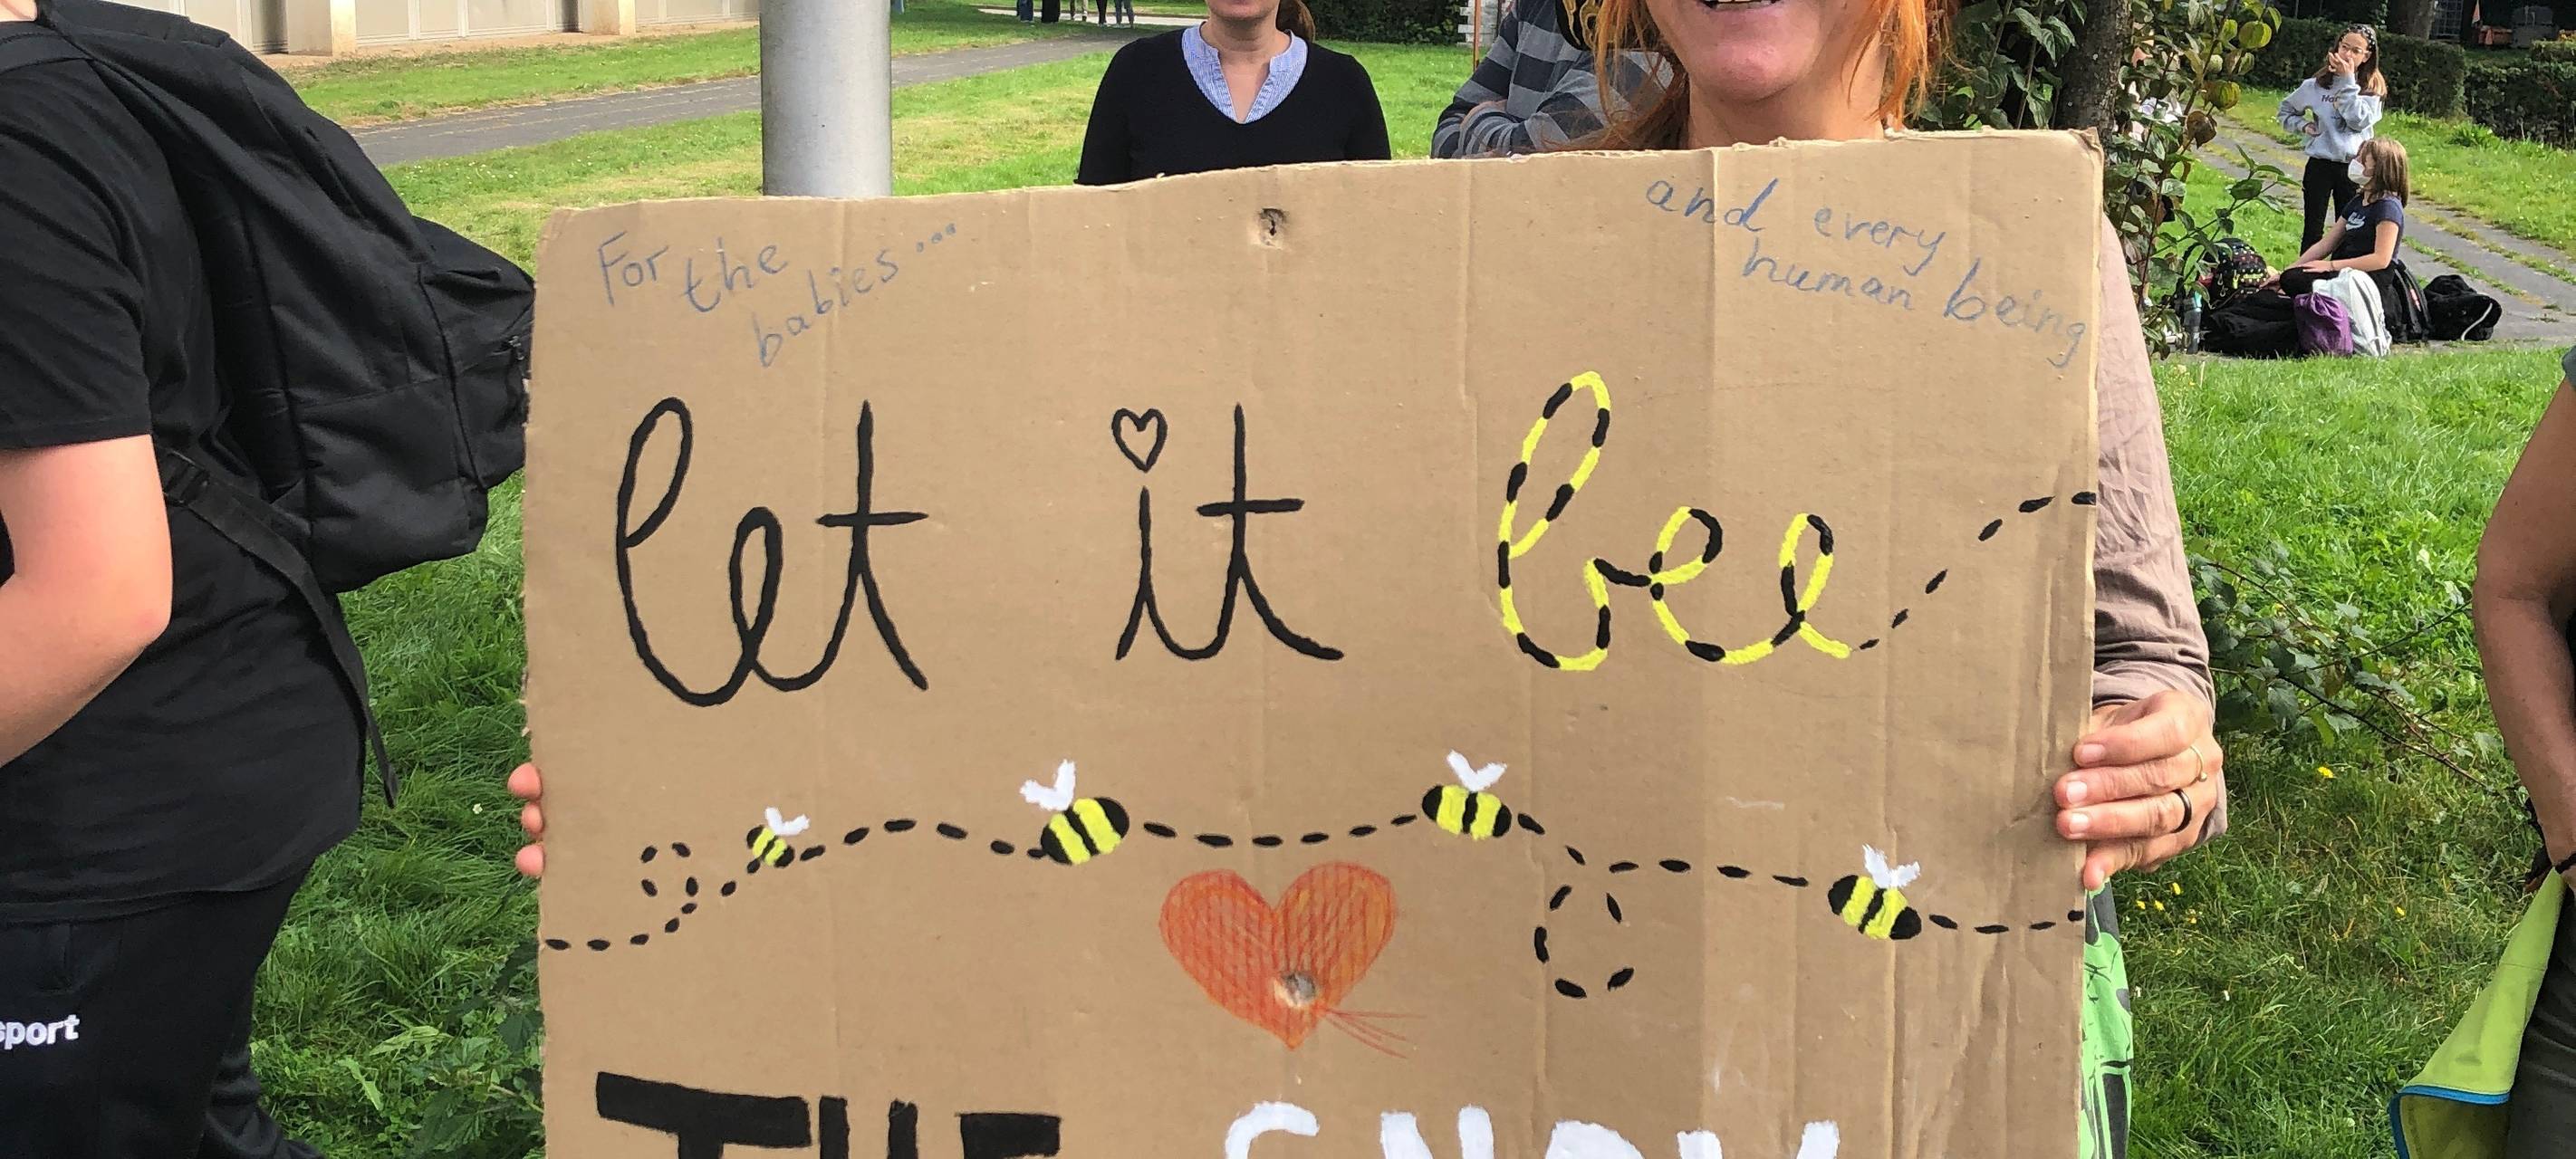 For the
babies...
and every
human being
let it bee
THE
sport